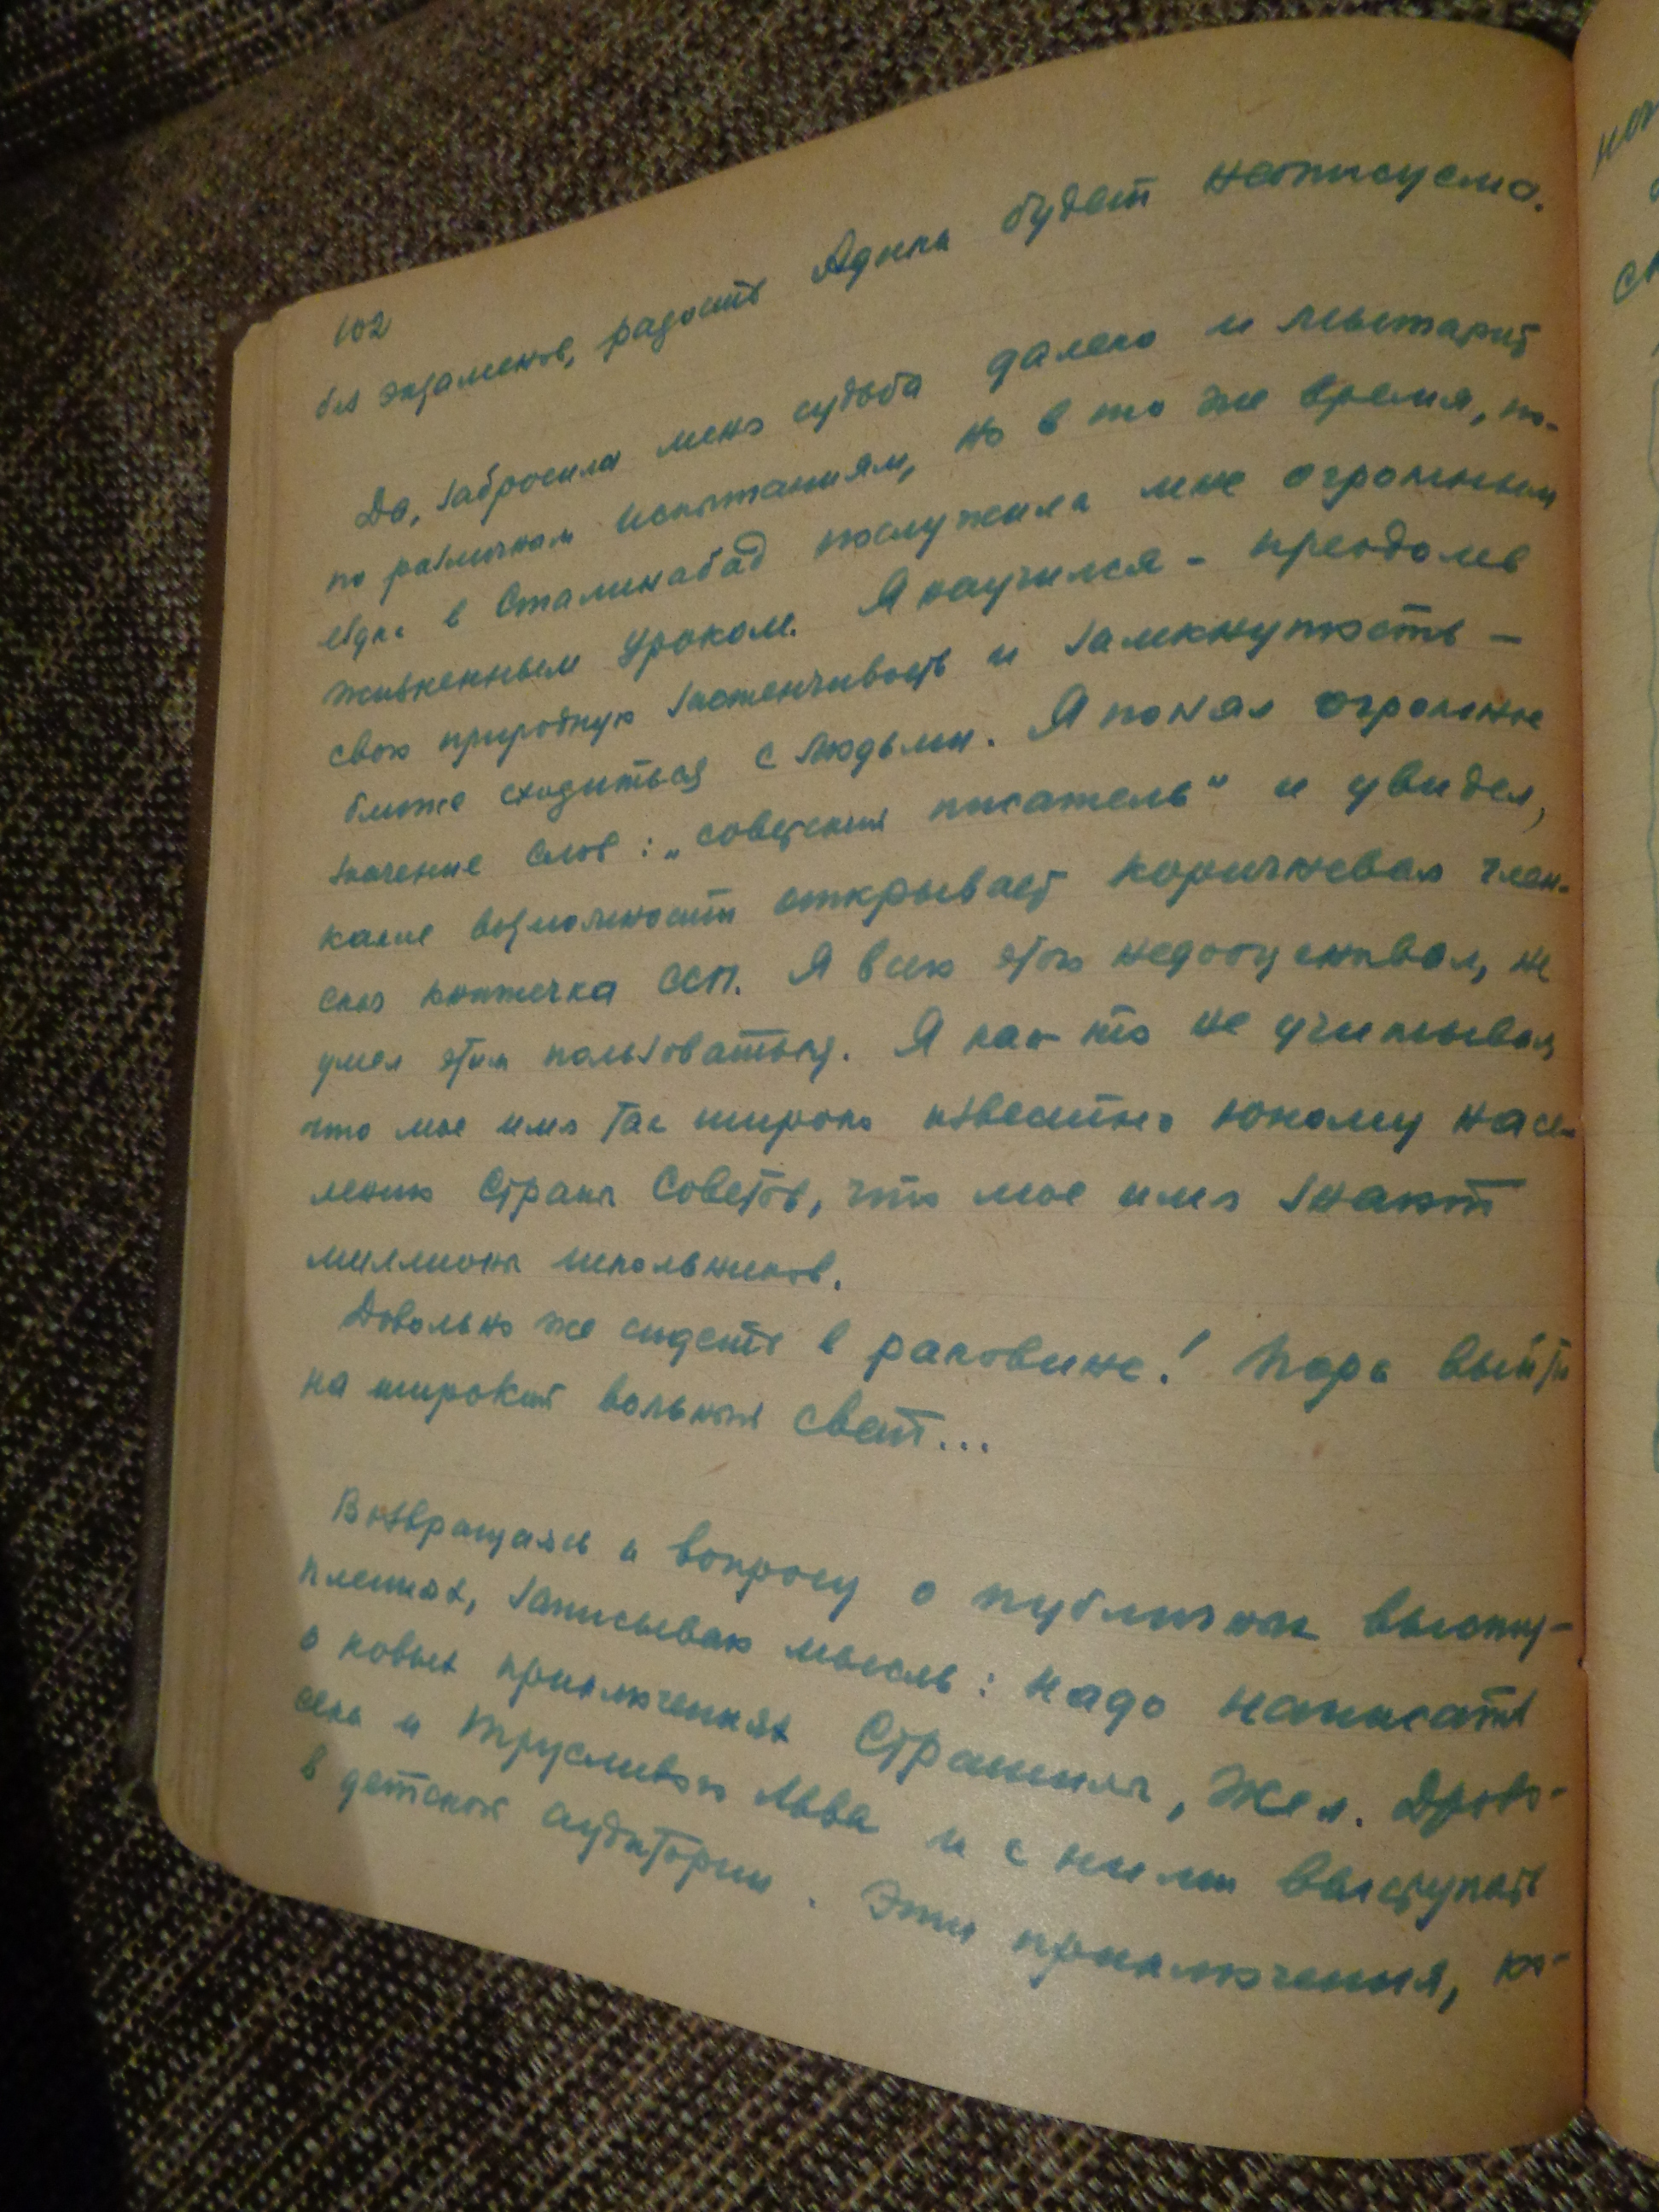 102
без экзаменов, радость Адика будет неописуема.
Да, забросила меня судьба далеко и мытарит
по различным испытаниям, но в то же время, по-
ездка в Сталинабад послужила мне огромным
жизненным уроком. Я научился – преодолев
свою природную застенчивость и замкнутость –
ближе сходиться с людьми. Я понял огромное
значение слов: „советский писатель" и увидел,
какие возможности открывает коричневая член-
ская книжечка ССП. Я всего этого недооценивал, не
умел этим пользоваться. Я как-то не учитывал,
что мое имя так широко известно юному насе-
лению Страны Советов, что мое имя знают
миллионы школьников.
Довольно же сидеть в раковине! Пора выйти
на широкий вольный свет...
Возвращаясь к вопросу о публичных выступ-
лениях, записываю мысль: надо написать
о новых приключениях Страшилы, Жел. Дрово-
сека и Трусливого Льва и с ними выступать
в детской аудитории. Эти приключения, ко-